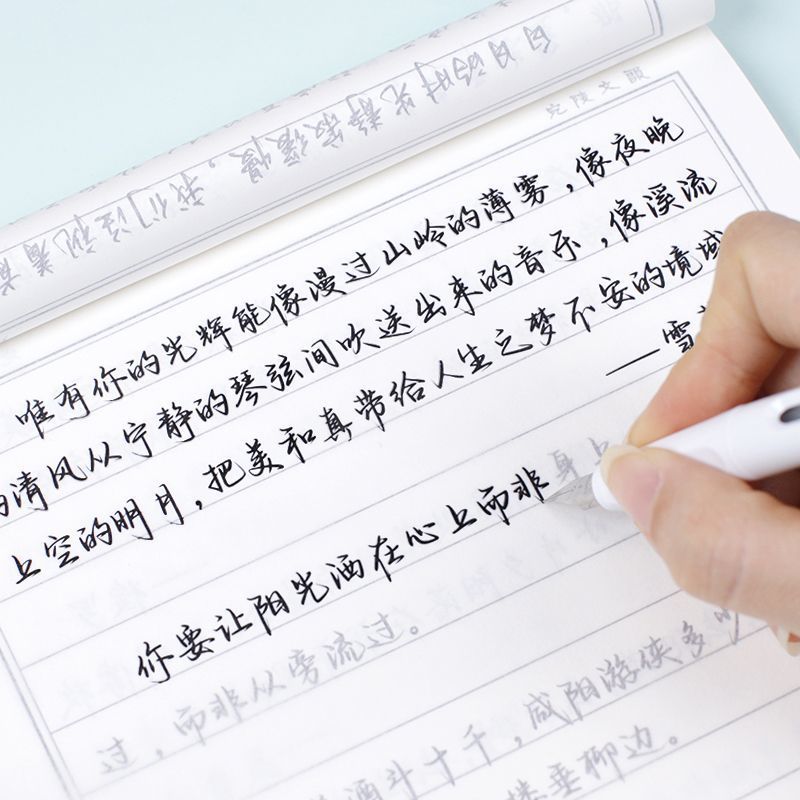 白日的时光静寂缓慢。我们注视着
唯有你的光辉能像漫过山岭的薄雾，像夜晚
的清风从宁静的琴弦间吹送出来的音乐，像溪流
上空的明月，把美和真带给人生之梦不安的境域
——雪
你要让阳光洒在心上而非身上
过，而非从旁流过。
酒斗十千，咸阳游侠多少
垂柳边。